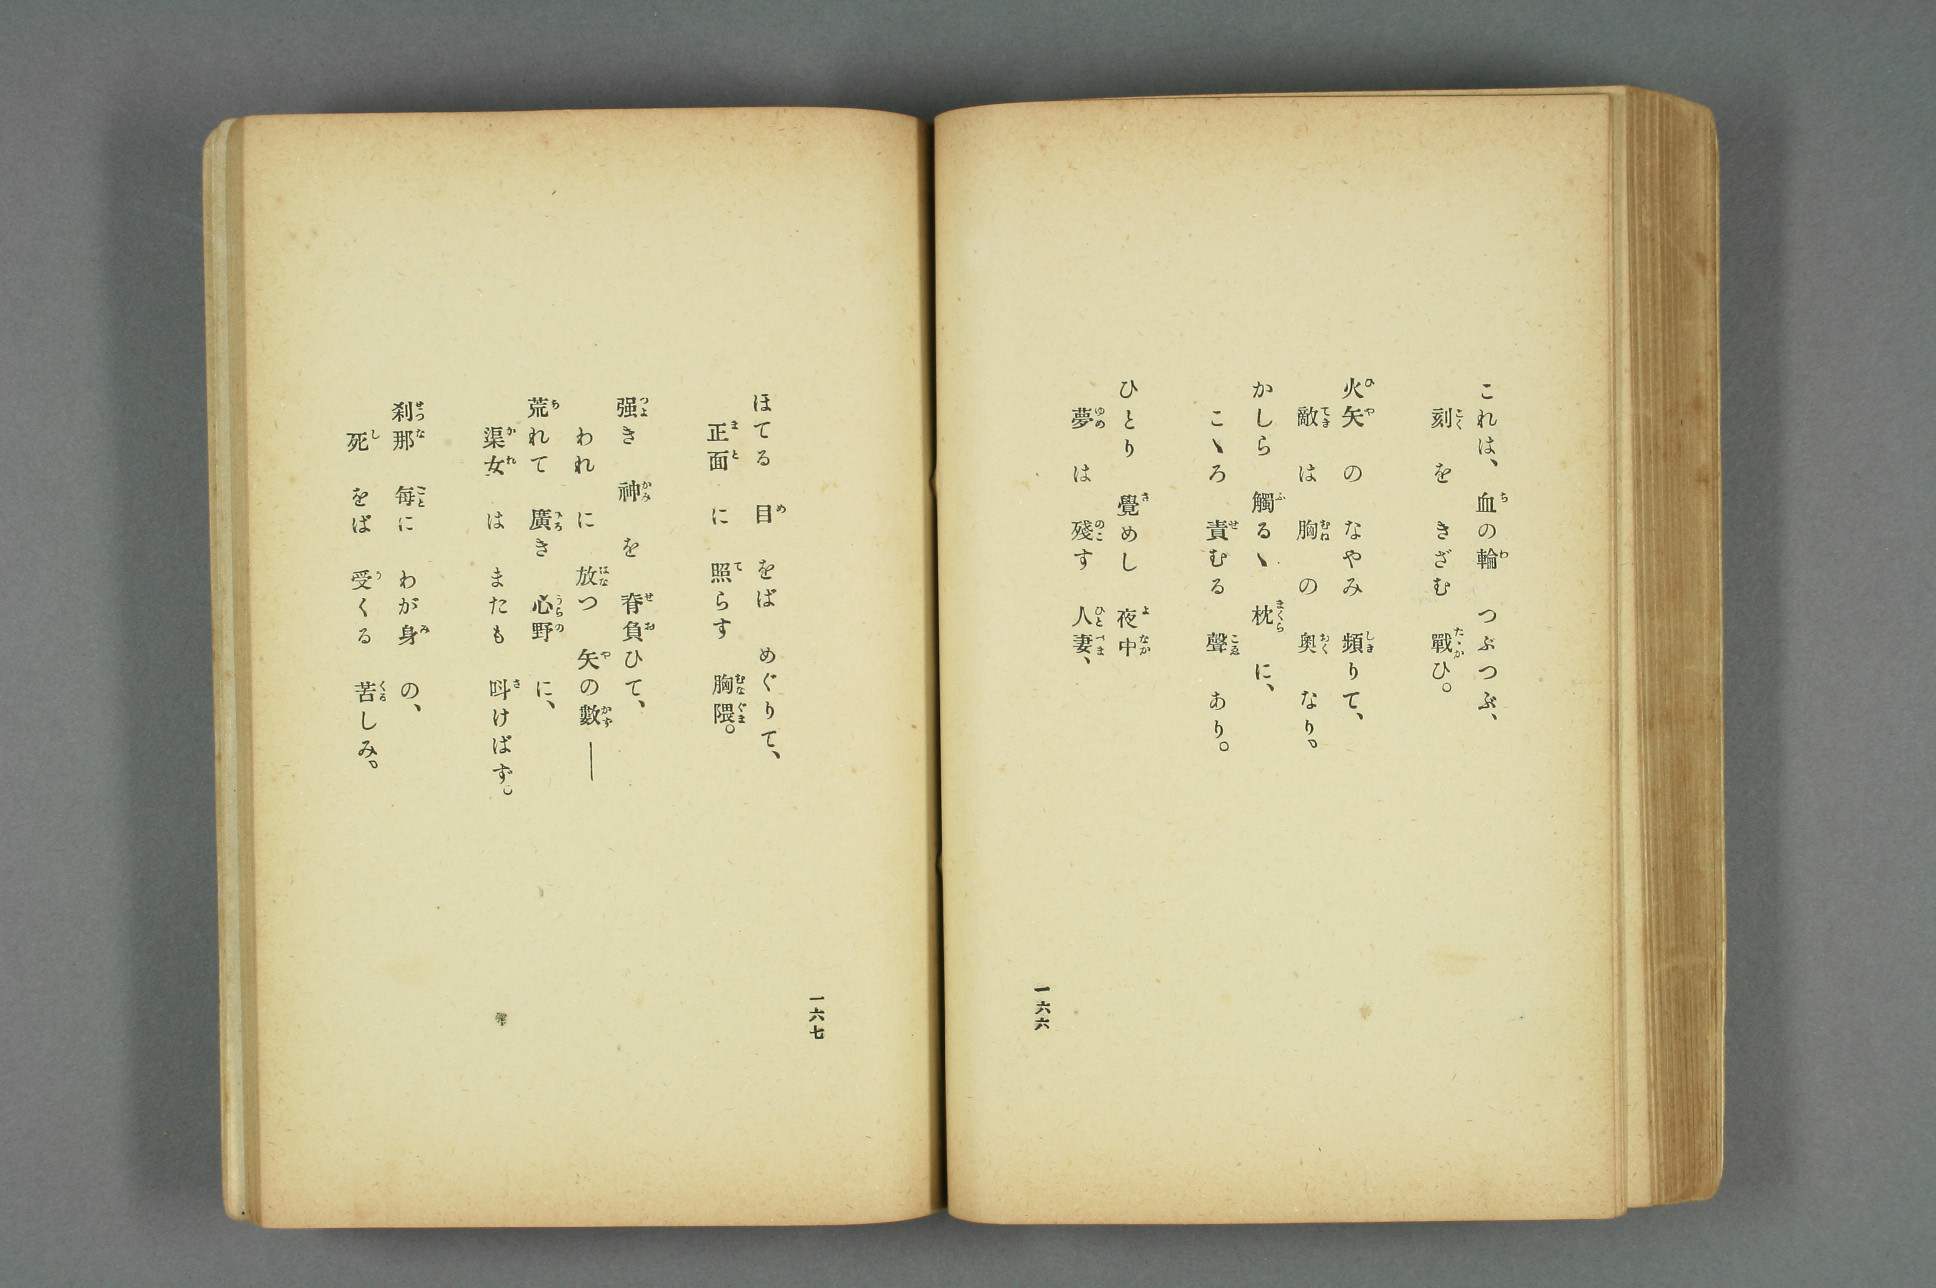 これは、血の輪 つぶつぶ、
刻 を きざむ 戰ひ。
火矢 の なやみ 頻りて、
敵 は 胸 の 奧 なり。
かしら 觸るヽ 枕 に、
こヽろ 責むる 聲 あり。
ひとり 覺めし 夜中
夢 は 殘す 人妻、
一六六
ほてる 目 をば めぐりて、
正面 に 照らす 胸隈。
强き 神 を 脊負ひて、
われ に 放つ 矢の數──
荒れて 廣き 心野 に、
渠女 は またも 呌けばず。
刹那 每に わが身 の、
死 をば 受くる 苦しみ。
一六七